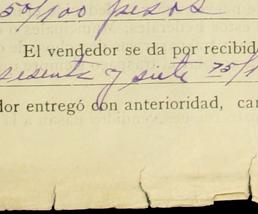 50/100 pesos
El vendedor se da por recibid
sesenta y siete 75/1
dor entregó con anterioridad, can